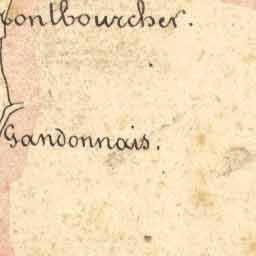 ontbourcher.
Gandonnais.